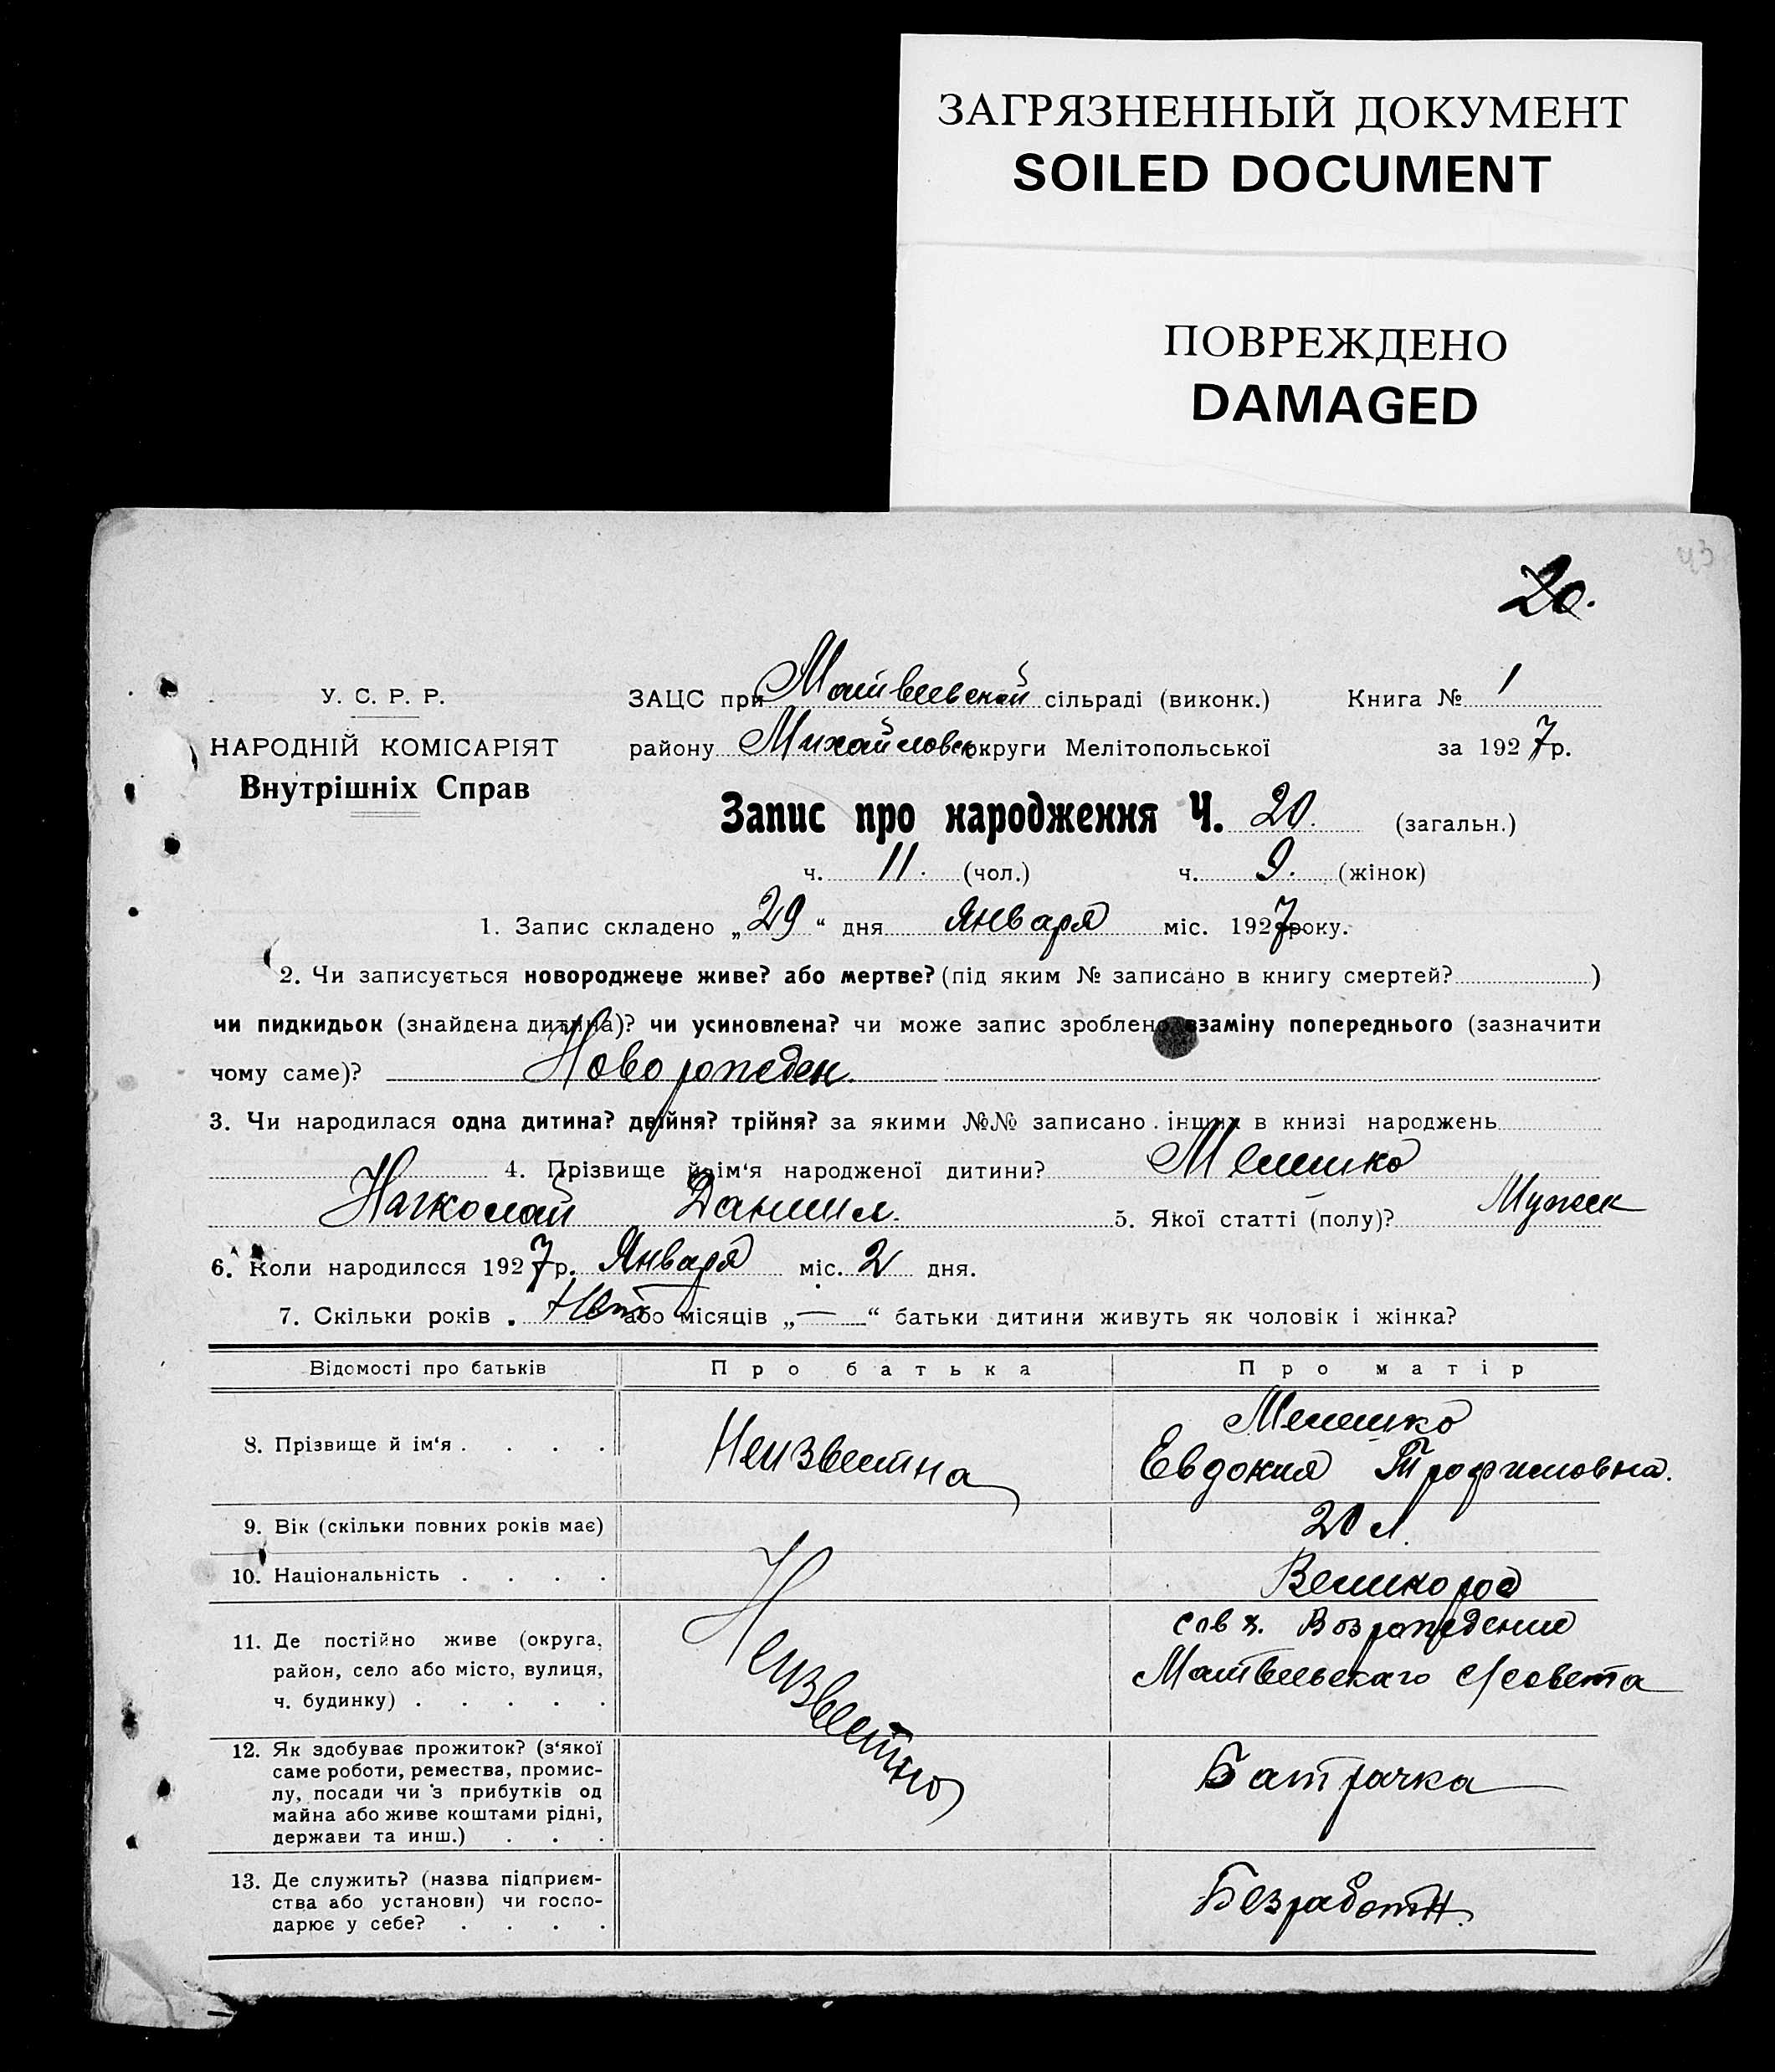 ЗАГРЯЗНЕННЫЙ ДОКУМЕНТ
SOILED DOCUMENT
ПОВРЕЖДЕНО
DAMAGED
43
20.
У. С. Р. Р.
НАРОДНІЙ КОМІСАРІЯТ
Внутрішніх Справ
ЗАЦС при Матвеевской сільраді (виконк.) Книга № 1
району Михайловск округи Мелітопольської за 1927 р.
Запис про народження Ч. 20. (загальн.)
ч. 11. (чол.) ч. 9. (жінок)
1. Запис складено „29“ дня Января міс. 1927 року.
2. Чи записується новороджене живе? або мертве? (під яким № записано в книгу смертей? )
чи пидкидьок (знайдена дитина)? чи усиновлена? чи може запис зроблено взаміну попереднього (зазначити
чому саме)? Новорожден.
3. Чи народилася одна дитина? двійня? трійня? за якими №№ записано інших в книзі народжень
4. Прізвище й ім‘я народженої дитини? Мелешко
Николай Данил. 5. Якої статті (полу)? Мужск
6. Коли народилося 1927 р. Января міс. 2 дня.
7. Скільки років Нет або місяців „—“ батьки дитини живуть як чоловік і жінка?
Відомості про батьків Про батька Про матір
8. Прізвище й ім‘я . . . . Неизвестна Мелешко
Евдокия Трофимовна.
9. Вік (скільки повних років має) 20 л.
10. Національність . . . . Неизвестно Великорос
11. Де постійно живе (округа, район, село або місто, вулиця, ч. будинку) . . . . . совх. Возрождение
Матвеевскаго с/совета
12. Як здобуває прожиток? (з‘якої
саме роботи, ремества, промис-
лу, посади чи з прибутків од
майна або живе коштами рідні,
держави та инш.) . . . Батрачка
13. Де служить? (назва підприєм-
ства або установи) чи госпо-
дарює у себе? . . . . Безработн.